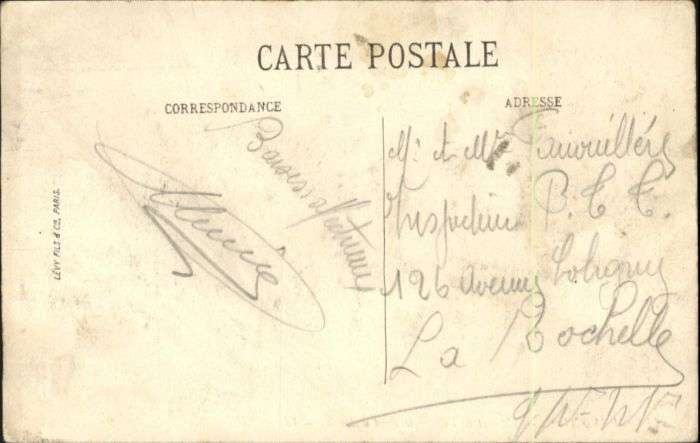 CARTE POSTALE
CORRESPONDANCE
ADRESSE
LÉVY FILS & CO, PARIS.
Baisers affectueux
M. et Mme
Inspecteur P.T.T.
126 Avenue Coligny
La Rochelle